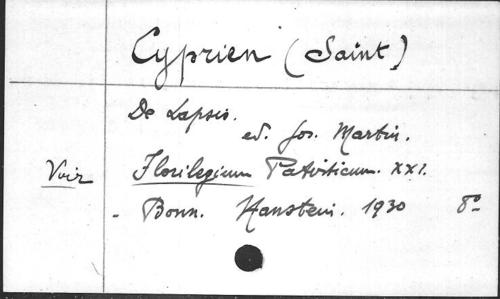 Cyprien (Saint)
De Lapsis.
ed. Jos. Martin.
Voir Florilegium Patristicum. XXI.
- Bonn. Hanstein. 1930 8º